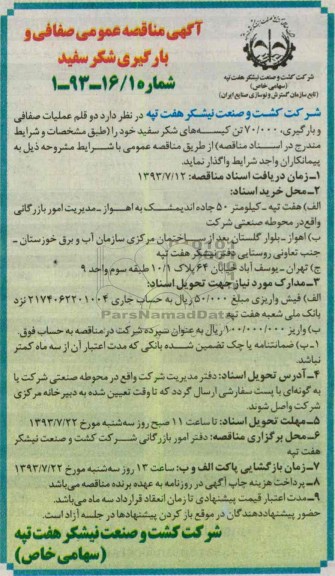 آگهی مناقصه عمومی صفافی و
بارگیری شکر سفید
شماره ۱۶/۱-۹۳-۱
شرکت کشت و صنعت نیشکر هفت تپه
(سهامی خاص)
(تابع سازمان گسترش و نوسازی صنایع ایران)
شرکت کشت و صنعت نیشکر هفت تپه در نظر دارد دو قلم عملیات صفافی
و بارگیری ۷۰/۰۰۰ تن کیسه‌های شکر سفید خود را (طبق مشخصات و شرایط
مندرج در اسناد مناقصه) از طریق مناقصه عمومی با شرایط مشروحه ذیل به
پیمانکاران واجد شرایط واگذار نماید.
۱-زمان دریافت اسناد مناقصه: ۱۳۹۳/۷/۱۲
۲-محل خرید اسناد:
الف) هفت تپه - کیلومتر ۵۰ جاده اندیمشک به اهواز - مدیریت امور بازرگانی
واقع در محوطه صنعتی شرکت
ب) اهواز - بلوار گلستان بعد از ساختمان مرکزی سازمان آب و برق خوزستان -
جنب تعاونی روستایی دفتر نیشکر هفت تپه
ج) تهران - یوسف آباد خیابان ۶۴ پلاک ۱۰/۱ طبقه سوم واحد ۹
۳-مدارک مورد نیاز جهت تحویل اسناد:
الف) فیش واریزی مبلغ ۵۰۰/۰۰۰ ریال به حساب جاری ۲۱۷۴۰۶۲۲۰۱۰۰۴ نزد
بانک ملی شعبه هفت تپه
ب) واریز ۱۰۰/۰۰۰/۰۰۰ ریال به عنوان سپرده شرکت در مناقصه به حساب فوق.
۱-ب) ضمانتنامه یا چک تضمین شده بانکی که مدت اعتبار آن از سه ماه کمتر
نباشد.
۴-آدرس تحویل اسناد: دفتر مدیریت شرکت واقع در محوطه صنعتی شرکت یا
به گونه‌ای با پست سفارشی ارسال گردد که تا وقت تعیین شده به دبیرخانه مرکزی
شرکت واصل شوند.
۵-مهلت تحویل اسناد: تا ساعت ۱۱ صبح روز سه‌شنبه مورخ ۱۳۹۳/۷/۲۲
۶-محل برگزاری مناقصه: دفتر امور بازرگانی شرکت کشت و صنعت نیشکر
هفت تپه
۷-زمان بازگشایی پاکت الف و ب: ساعت ۱۳ روز سه‌شنبه مورخ ۱۳۹۳/۷/۲۲
۸-پرداخت هزینه چاپ آگهی در روزنامه به عهده برنده مناقصه می‌باشد.
۹-مدت اعتبار قیمت پیشنهادی تا زمان انعقاد قرارداد سه ماه می‌باشد.
حضور پیشنهاددهندگان در موقع باز کردن پیشنهادها در جلسه آزاد است.
شرکت کشت و صنعت نیشکر هفت تپه
(سهامی خاص)
ParsNamadData